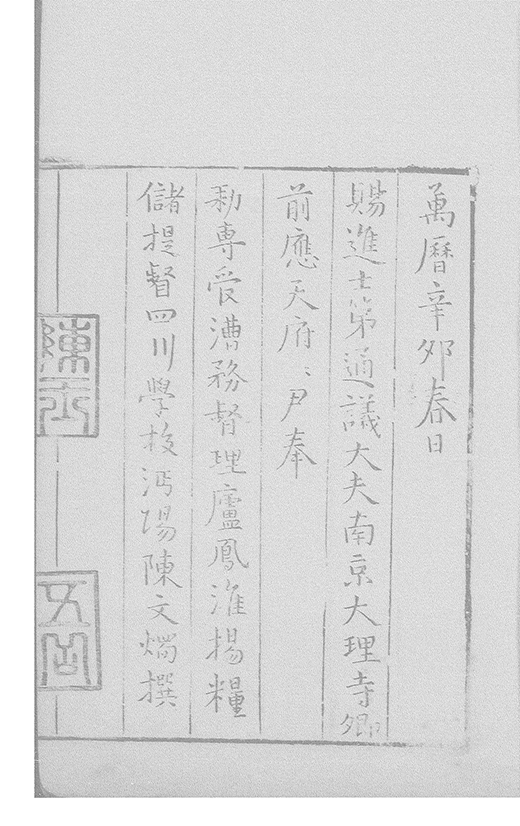 萬曆辛卯春日
賜進士第通議大夫南京大理寺卿
前應天府〻尹奉
勑專受漕務督理廬鳳淮揚糧
儲提督四川學校沔陽陳文燭撰
陳
五岳